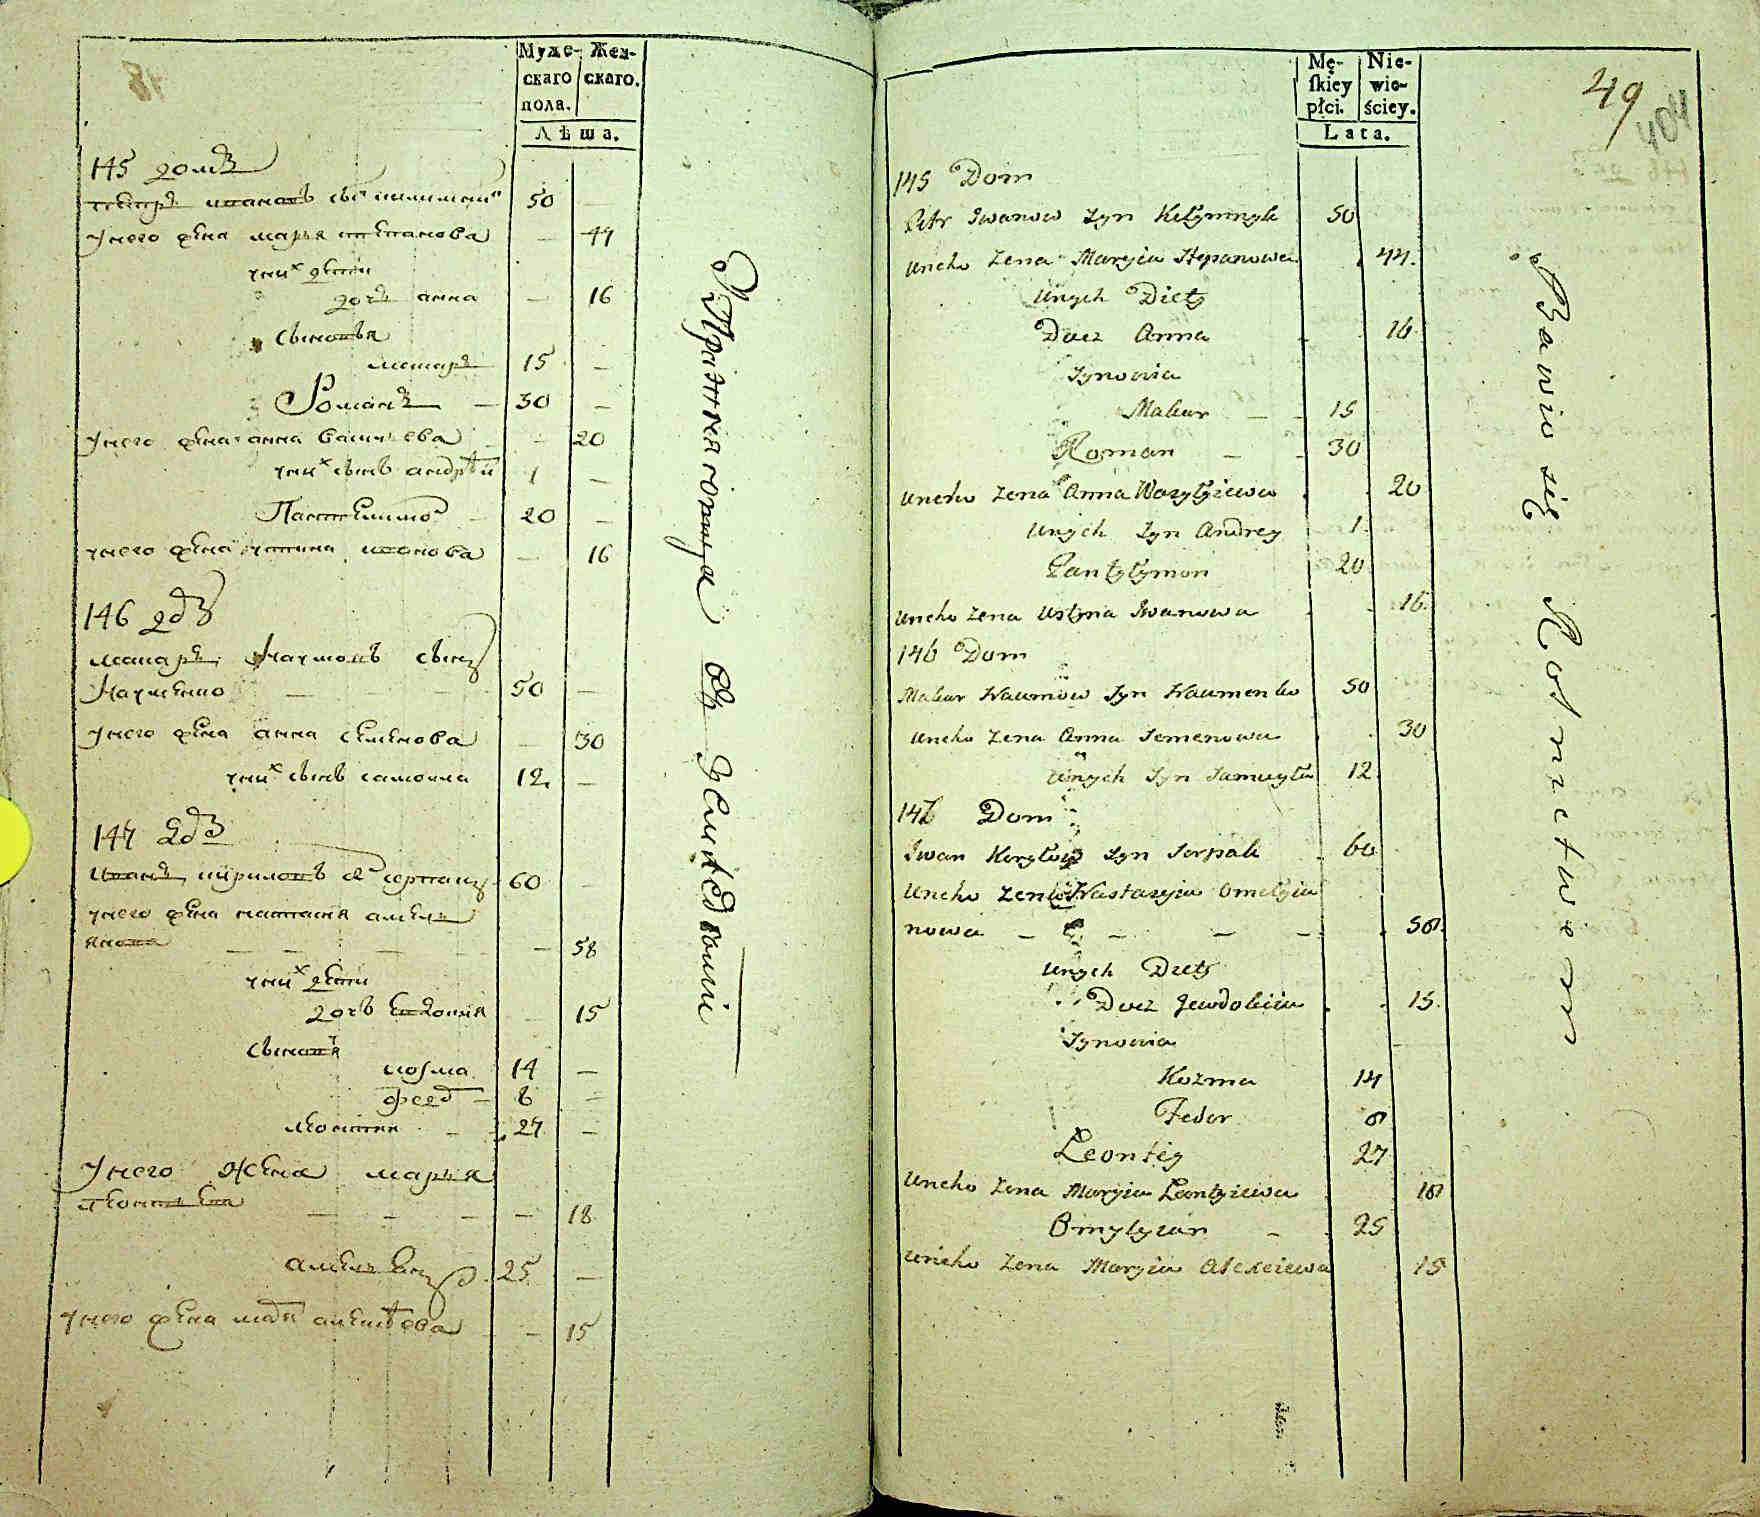 Муже-
скаго
пола.
Жен-
скаго.
Лѣта.
145 домъ
Петръ Ивановъ сынъ 50 —
Унего жена марья степанова — 44
уних дети
дочь анна — 16
Сыновья
макаръ 15 —
Романъ — 30 —
Унего жена анна василева — 20
уних сынъ андрѣй 1 —
Пантелимон — 20 —
унего жена устина иванова — 16
146 дъ
макаръ Наумовъ сынъ
Науменко — 50 —
Унего жена анна семенова — 30
уних сынъ самоила 12 —
147 дъ
Иванъ кириловъ сы серпакъ 60 —
унего жена настасия амелья
нова — 58
уних дети
дочь евдокия — 15
Сыновья
козма 14 —
федо — 8 —
леонтии — 27 —
Унего Жена марья
леонтьева — 18
амельянъ 25 —
унего жена марья алексѣева — 15
Упражняются въ земледелии
Mę-
skiey
płci.
Nie-
wie-
ściey.
Lata.
49
404
145 Dom
Petr Iwanow Syn 50
Uneho Zena Maryia Stepanowa 44
Unych Diety
Docz Anna 16
Synowia
Makar — 15
Roman — 30
Uneho Zena Anna Wasylyiewa 20
Unych Syn Andrey 1
Pantylymon 20
Uneho Zena Ustyna Iwanowa 16
146 Dom
Makar Naumow Syn Naumenko 50
Uneho Zena Anna Semenowa 30
Unych Syn Samuyła 12
147 Dom
Iwan Koryłow Syn Serpak 60
Uneho Zena Nastasyia Omelyia
nowa — 58
Unych Diety
Docz Jewdokija 15
Synowia
Kozma 14
Fedor 8
Leontey 27
Uneho Zena Maryia Leontyiewa 18
Omylyian — 25
Uneho Zena Maryia Alexeiewa 15
Bawio się Rolnictwem